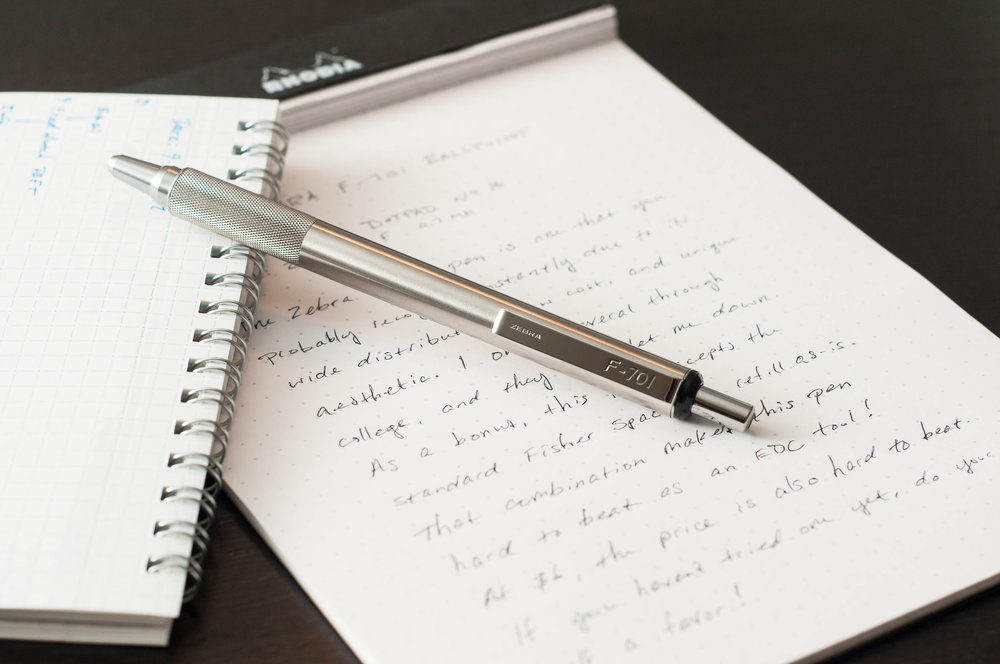 RHODIA
RA F-701 BALLPOINT
DOTPAD No 16
F 0.7 MM
he Zebra pen is one that you
Probably reco nstantly due to its
wide distribut ow cost, and unique
aesthetic. I o several through
college, and they let me down.
As a bonus, this cepts the
standard Fisher Spac refill as-is.
That combination makes this pen
hard to beat as an EDC tool!
At $6, the price is also hard to beat.
If you haven't tried one yet, do your
a favor!
ZEBRA
F-701